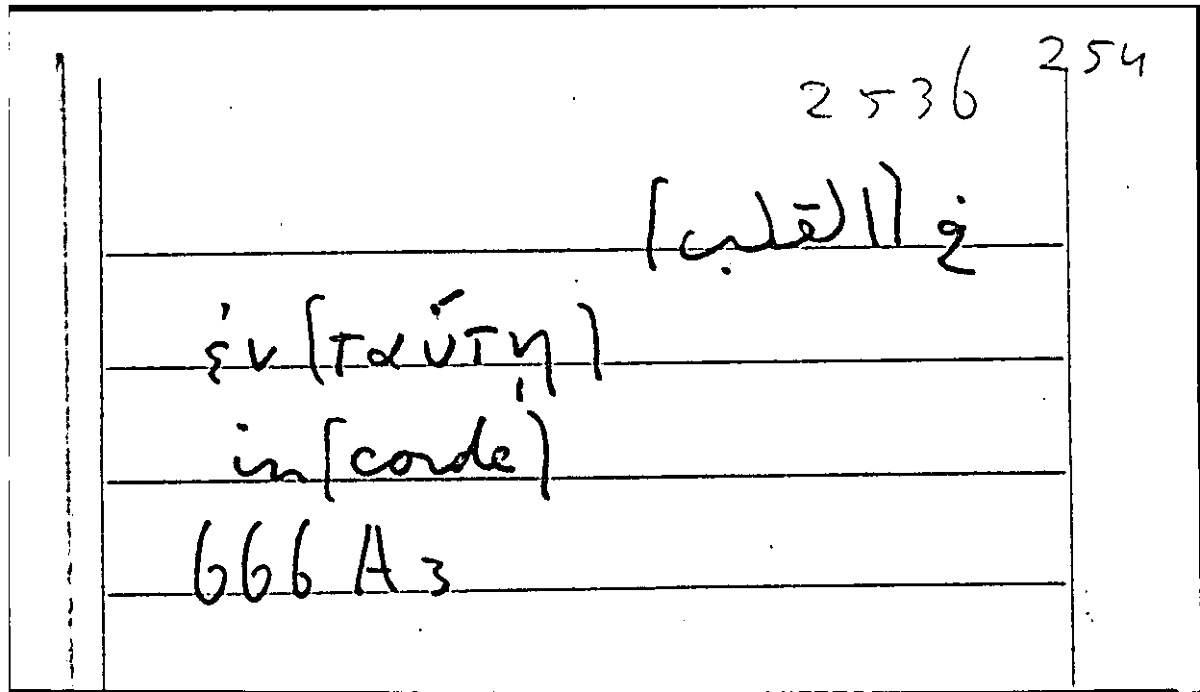 254
2536
في [القلب]
ἐν [ταύτῃ]
in [corde]
666 A 3